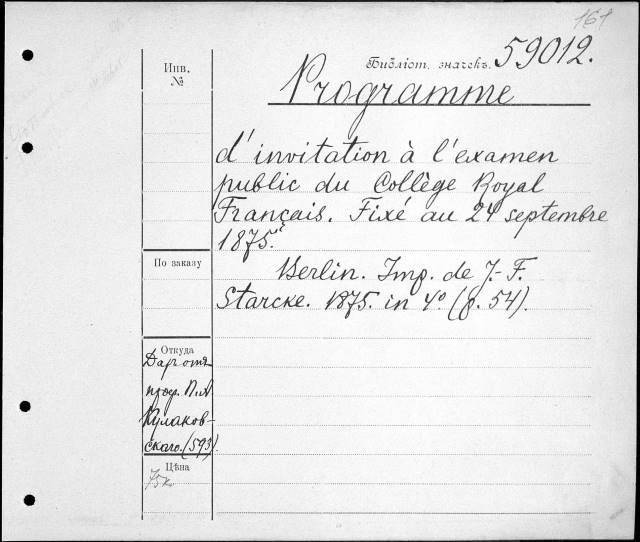 161
Библіот. значекъ. 59012.
Инв.
№
Programme
d'invitation à l'examen
public du Collège Royal
Français. Fixé au 24 septembre
1875.
По заказу
Berlin. Imp. de J.-F.
Starcke. 1875. in 4° (p. 54).
Откуда
Даръ отъ
проф. П. А.
Кулаков-
скаго. (593).
Цѣна
75 к.